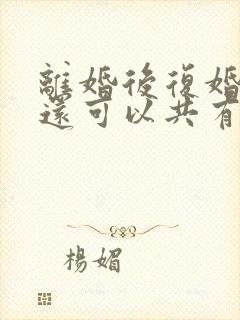 離婚後復婚
還可以共有
楊媚